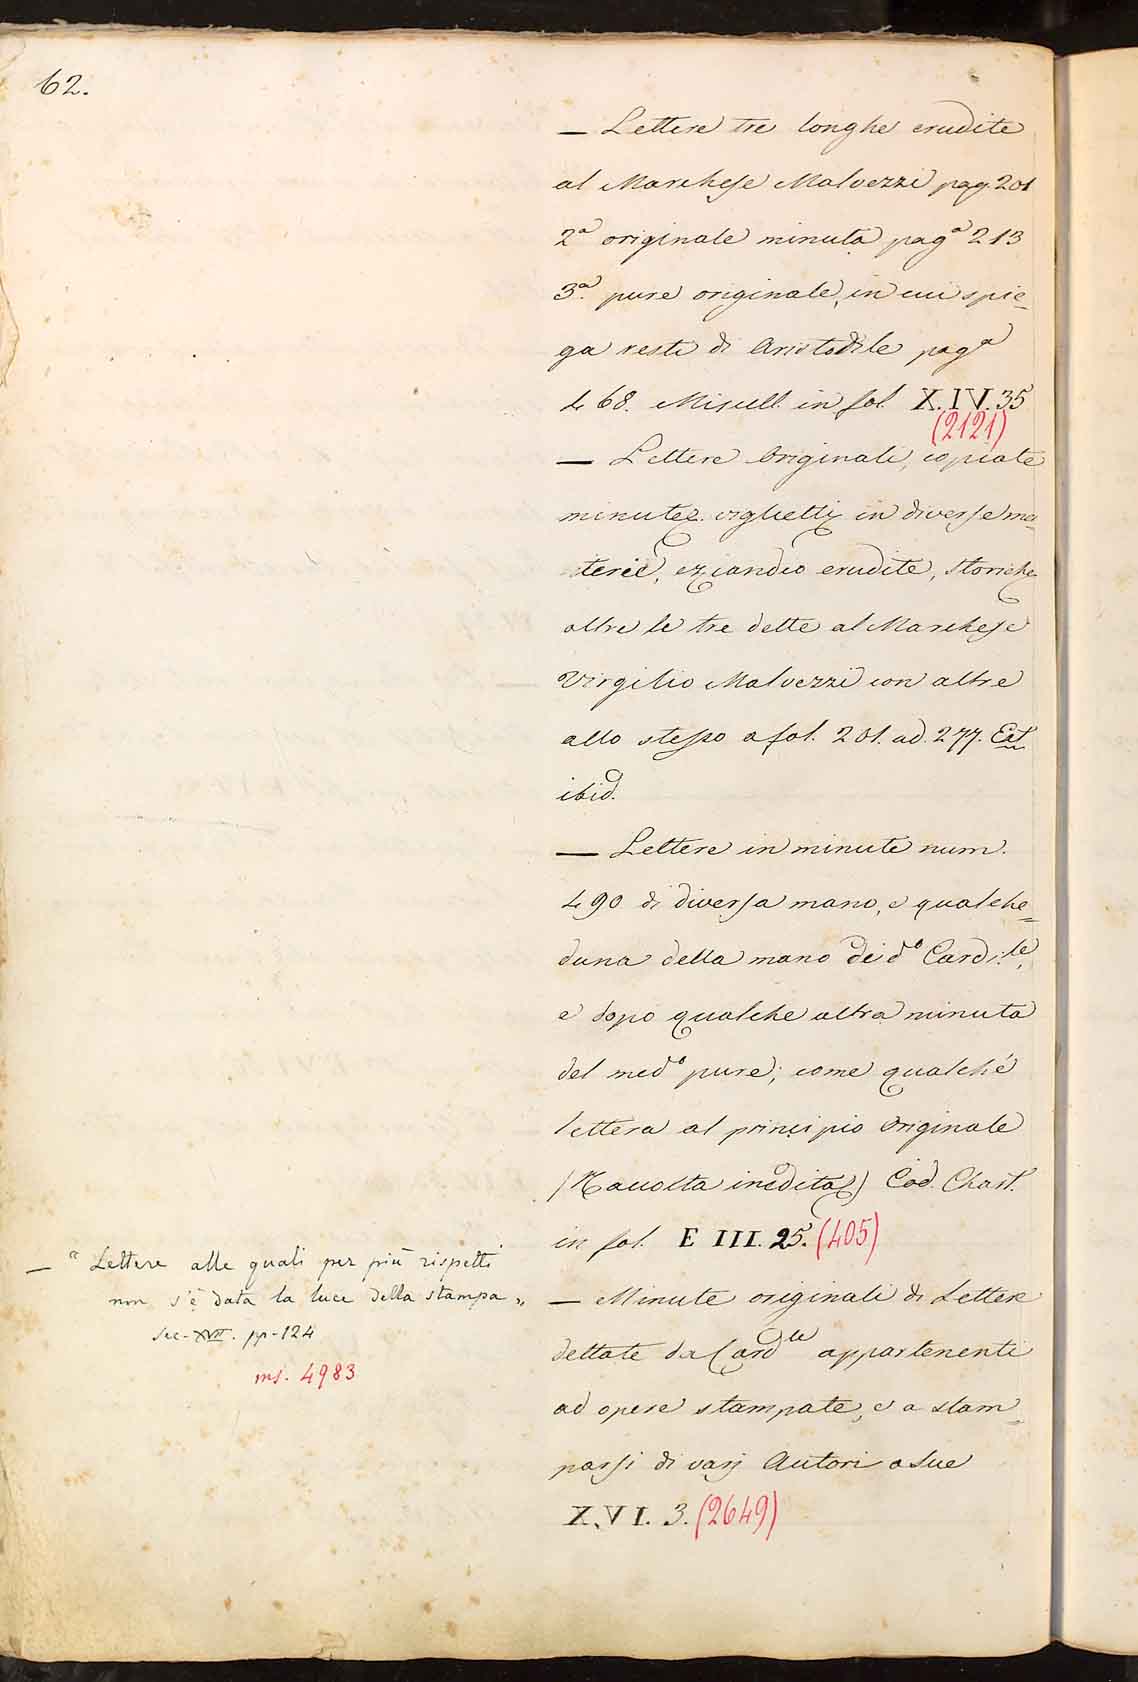 62.
— Lettere tre longhe erudite
al Marchese Malvezzi pag. 201
2ª originale minuta pagª 213
3ª pure originale, in cui spie=
ga testi di Aristotile pagª
468. Miscell. in fol. X.IV.35
(2121)
— Lettere Originali, copiate
minute e viglietti in diverse ma=
terie, eziandio erudite, storiche
oltre le tre dette al Marchese
Virgilio Malvezzi con altre
allo stesso a fol. 201. ad. 277. Ext
ibid.
— Lettere in minute num.
490 di diversa mano, e qualche=
duna della mano de dº Cardi.le,
e dopo qualche altra minuta
del medº pure; come qualche
lettera al principio originale
(Raccolta inedita) Cod. Chart.
in fol. E III. 25. (405)
— Minute originali di Lettere
dettate da Cardle appartenenti
ad opere stampate, e a stam=
parsi di varj Autori a Sue
X.VI. 3. (2649)
— " Lettere alle quali per più rispetti
non s'è data la luce della stampa „
Sec. XVII. pp. 124
ms. 4983